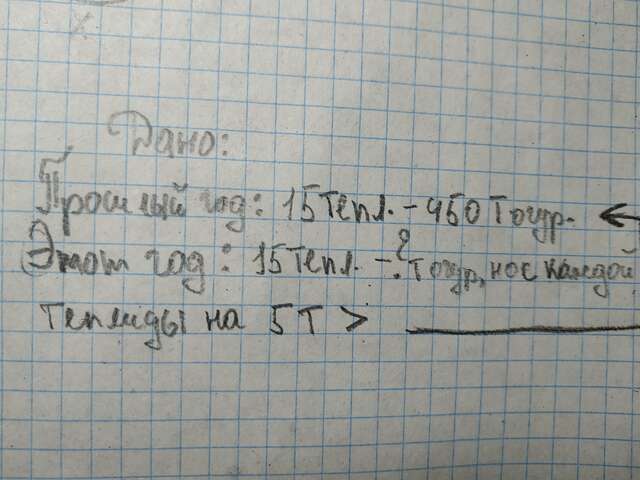 Дано:
Прошлый год: 15 Тепл. - 450 Т огур. ←
Этот год: 15 Тепл. - ? Т огур, но с каждой
теплицы на 5 Т >